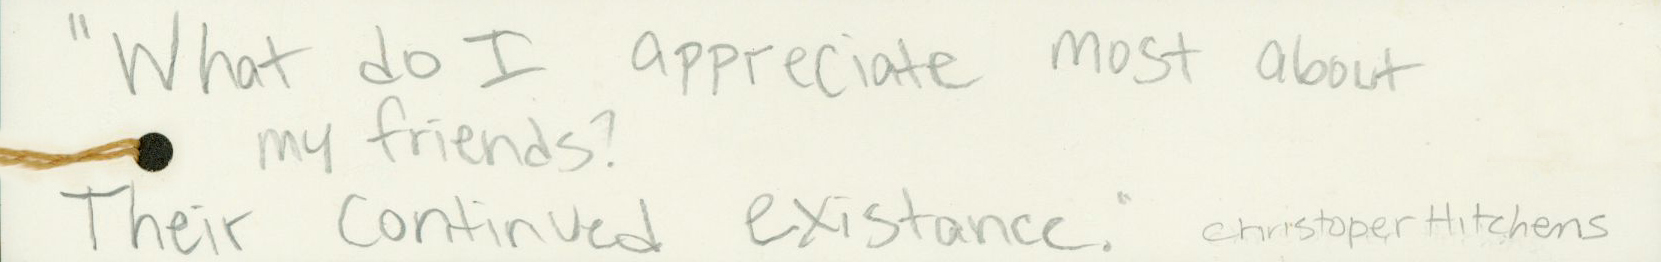 "What do I appreciate most about
my friends?
Their continued existance." Christoper Hitchens